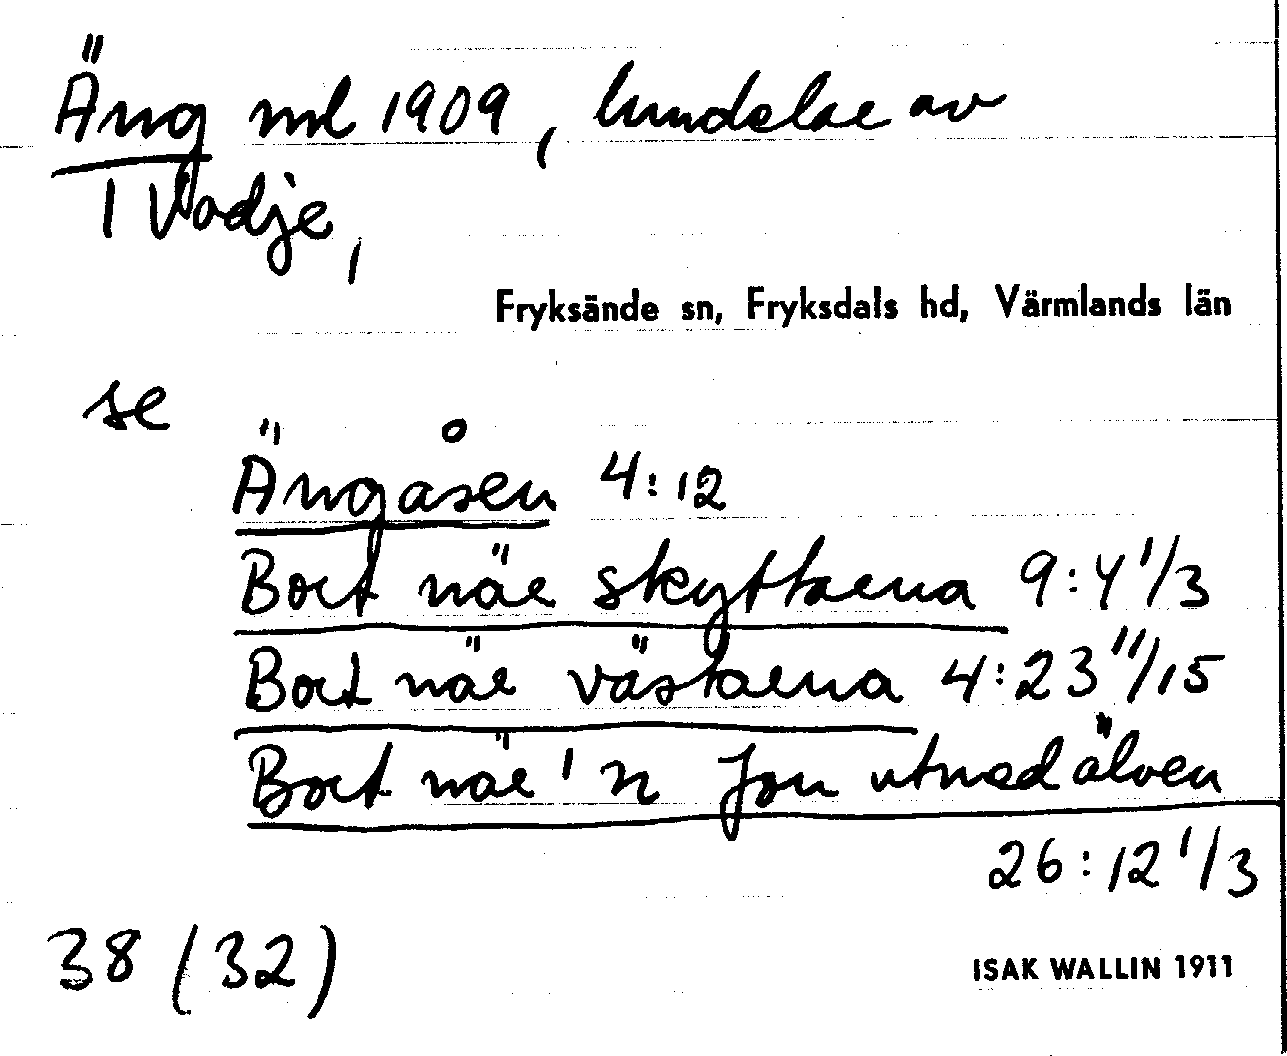 Äng ml 1909, lundelar av
1 Vadje,
Fryksände sn, Fryksdals hd, Värmlands län
se
Ängåsen 4:12
Bort när skyttarna 9:4 1/3
Bort när västarna 4:23 11/15
Bort när 'n Jon utmed älven
26:12 1/3
38 (32)
ISAK WALLIN 1911